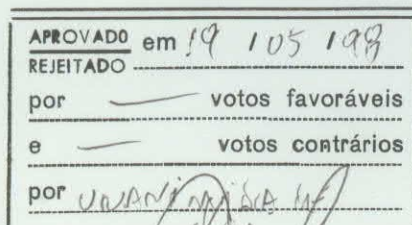 APROVADO em 19 / 05 / 98
REJEITADO
por — votos favoráveis
e — votos contrários
por